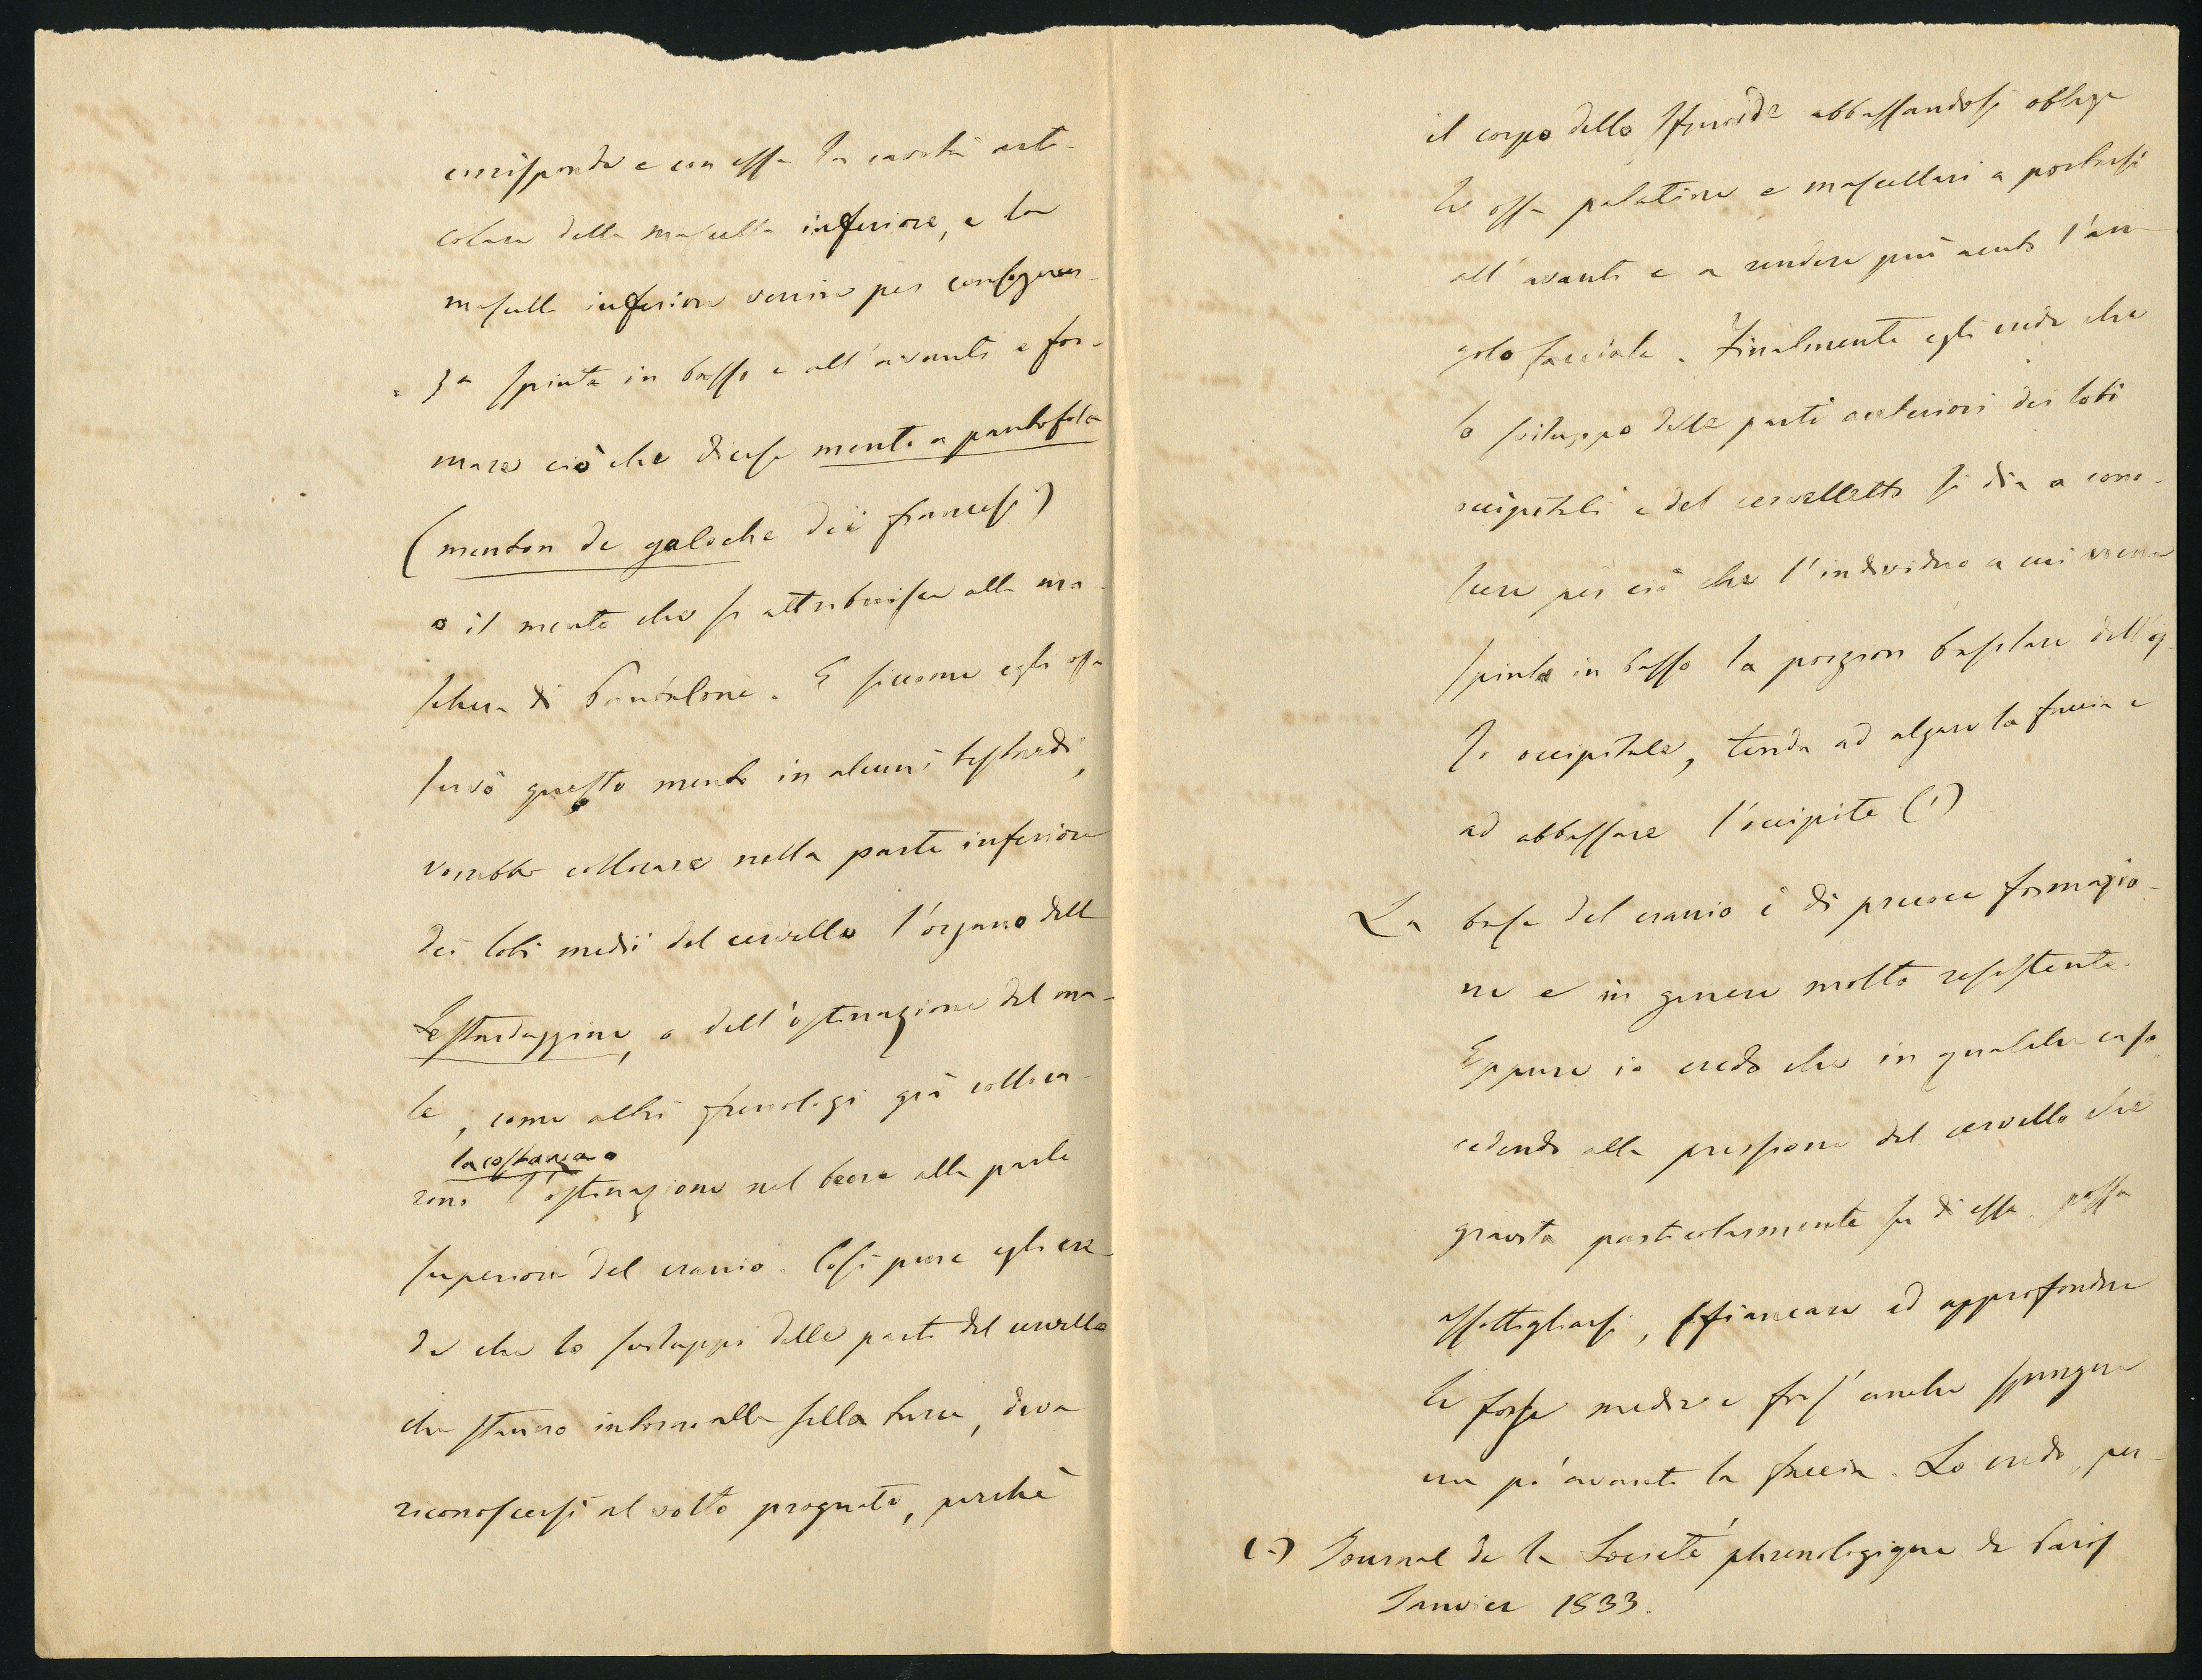 corrisponde e con essa la cavità arti-
colare della mascella inferiore, e la
mascella inferiore venire per conseguen-
za spinta in basso e all'avanti e for-
mare ciò che dicesi mento a pantofola
(menton de galoche dei francesi)
o il mento che si attribuisce alla ma-
schera di Pantalone. E siccome egli os-
servò questo mento in alcuni testardi,
vorrebbe collocare nella parte inferiore
dei lobi medii del cervello l'organo della
Testardaggine, o dell'ostinazione del ma-
le, come altri frenologi già colloca-
la costanza o
rono l'ostinazione nel bene alla parte
superiore del cranio. Così pure egli cre-
de che lo sviluppo delle parti del cervello
che stanno intorno alla sella turca, deva
riconoscersi al volto prognato, perchè
il corpo dello Sfenoide abbassandosi obliga
le ossa palatine e mascellari a portarsi
all'avanti e a rendere più acuto l'an-
golo facciale. Finalmente egli crede che
lo sviluppo delle parti posteriori dei lobi
occipitali e del cervelletto si dia a cono-
scere per ciò che l'individuo a cui viene
spinta in basso la porzion basilare dell'os-
so occipitale, tenda ad alzare la faccia e
ad abbassare l'occipite (1)
La base del cranio è di precoce formazio-
ne e in genere molto resistente.
Eppure io credo che in qualche caso
cedendo alla pressione del cervello che
gravita particolarmente su di essa possa
assottigliarsi, sfiancare ed approfondire
le fosse medie e fors'anche spingere
un pò avanti la faccia. Lo credo, per-
(1) Journal de la Société phrenologique de Paris
Janvier 1833.